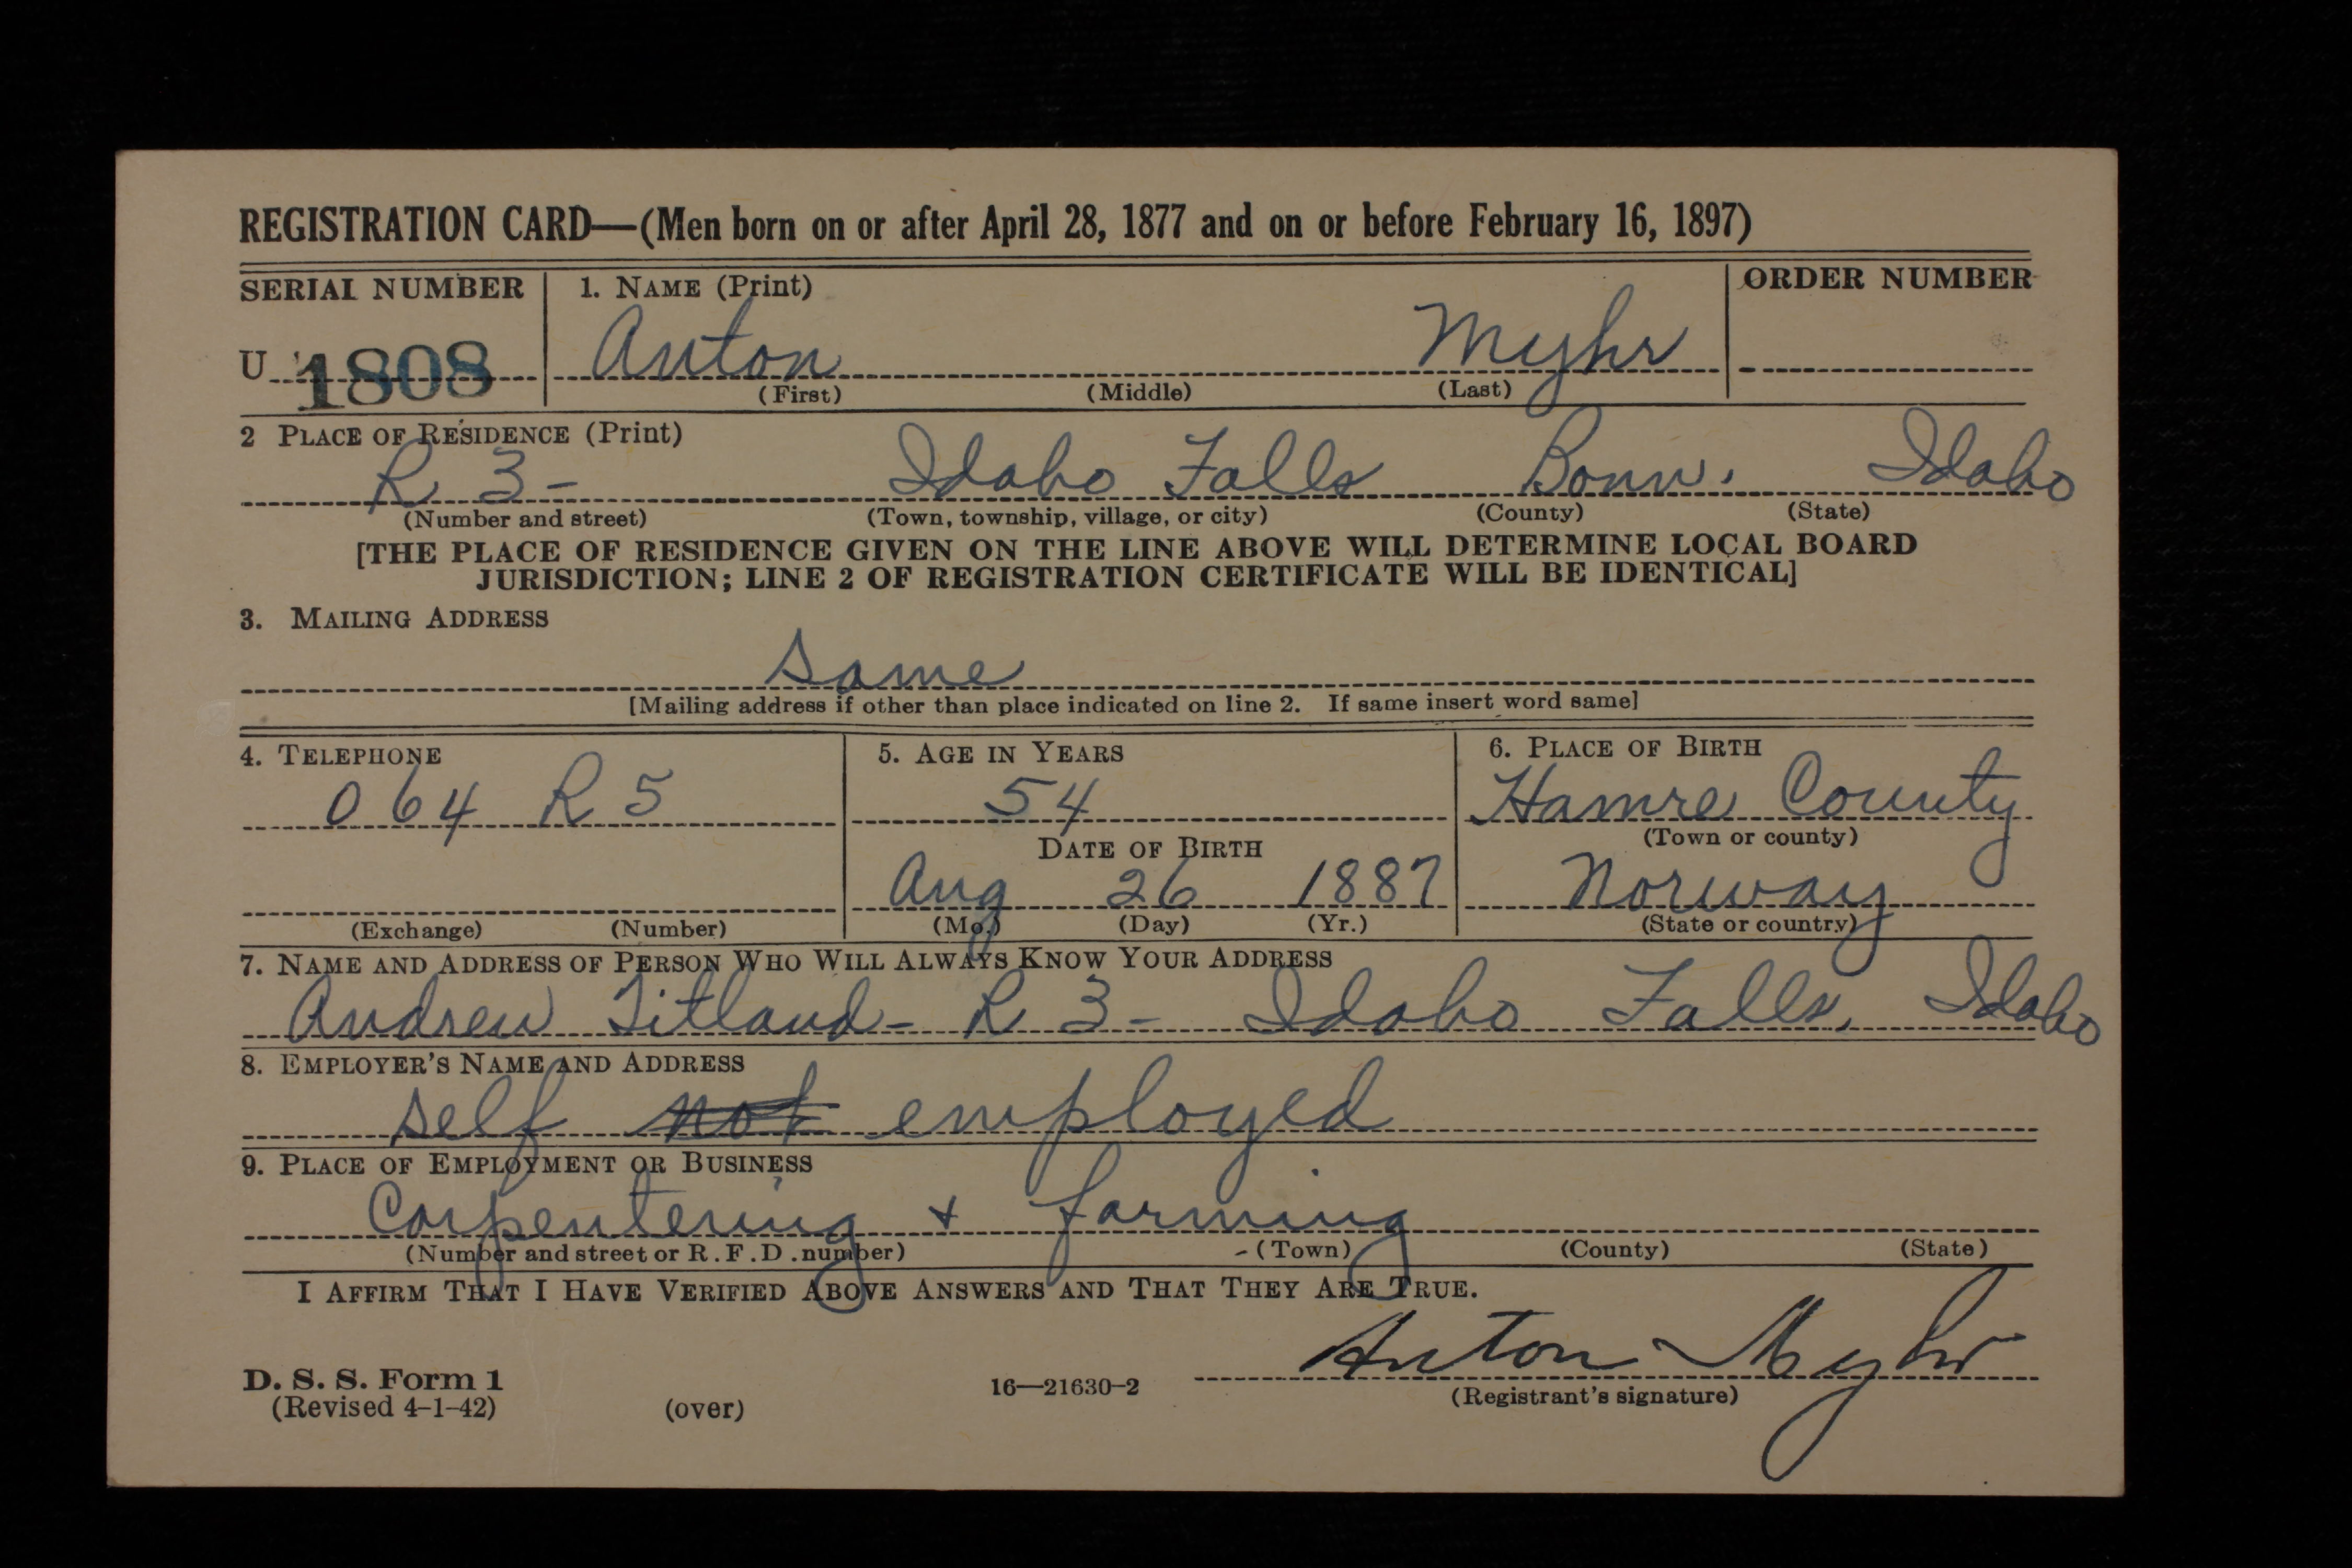 REGISTRATION CARD—(Men born on or after April 28, 1877 and on or before February 16, 1897)
SERIAL NUMBER
1. NAME (Print)
ORDER NUMBER
U 1808
Anton Myhr
(First) (Middle) (Last)
2 PLACE OF RESIDENCE (Print)
R 3 - Idaho Falls Bonn. Idaho
(Number and street) (Town, township, village, or city) (County) (State)
[THE PLACE OF RESIDENCE GIVEN ON THE LINE ABOVE WILL DETERMINE LOCAL BOARD
JURISDICTION; LINE 2 OF REGISTRATION CERTIFICATE WILL BE IDENTICAL]
3. MAILING ADDRESS
Same
[Mailing address if other than place indicated on line 2. If same insert word same]
4. TELEPHONE
064 R 5
(Exchange) (Number)
5. AGE IN YEARS
54
DATE OF BIRTH
Aug 26 1887
(Mo.) (Day) (Yr.)
6. PLACE OF BIRTH
Hamre County
(Town or county)
Norway
(State or country)
7. NAME AND ADDRESS OF PERSON WHO WILL ALWAYS KNOW YOUR ADDRESS
Andrew Titland - R 3 - Idaho Falls, Idaho
8. EMPLOYER'S NAME AND ADDRESS
self not employed
9. PLACE OF EMPLOYMENT OR BUSINESS
Carpentering + farming
(Number and street or R. F. D. number) (Town) (County) (State)
I AFFIRM THAT I HAVE VERIFIED ABOVE ANSWERS AND THAT THEY ARE TRUE.
Anton Myhr
(Registrant's signature)
D. S. S. Form 1
(Revised 4-1-42) (over) 16—21630-2